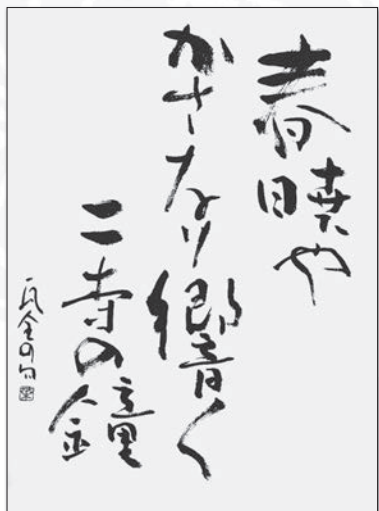 春暁や
かさなり響く
二寺の鐘
瓦全の句